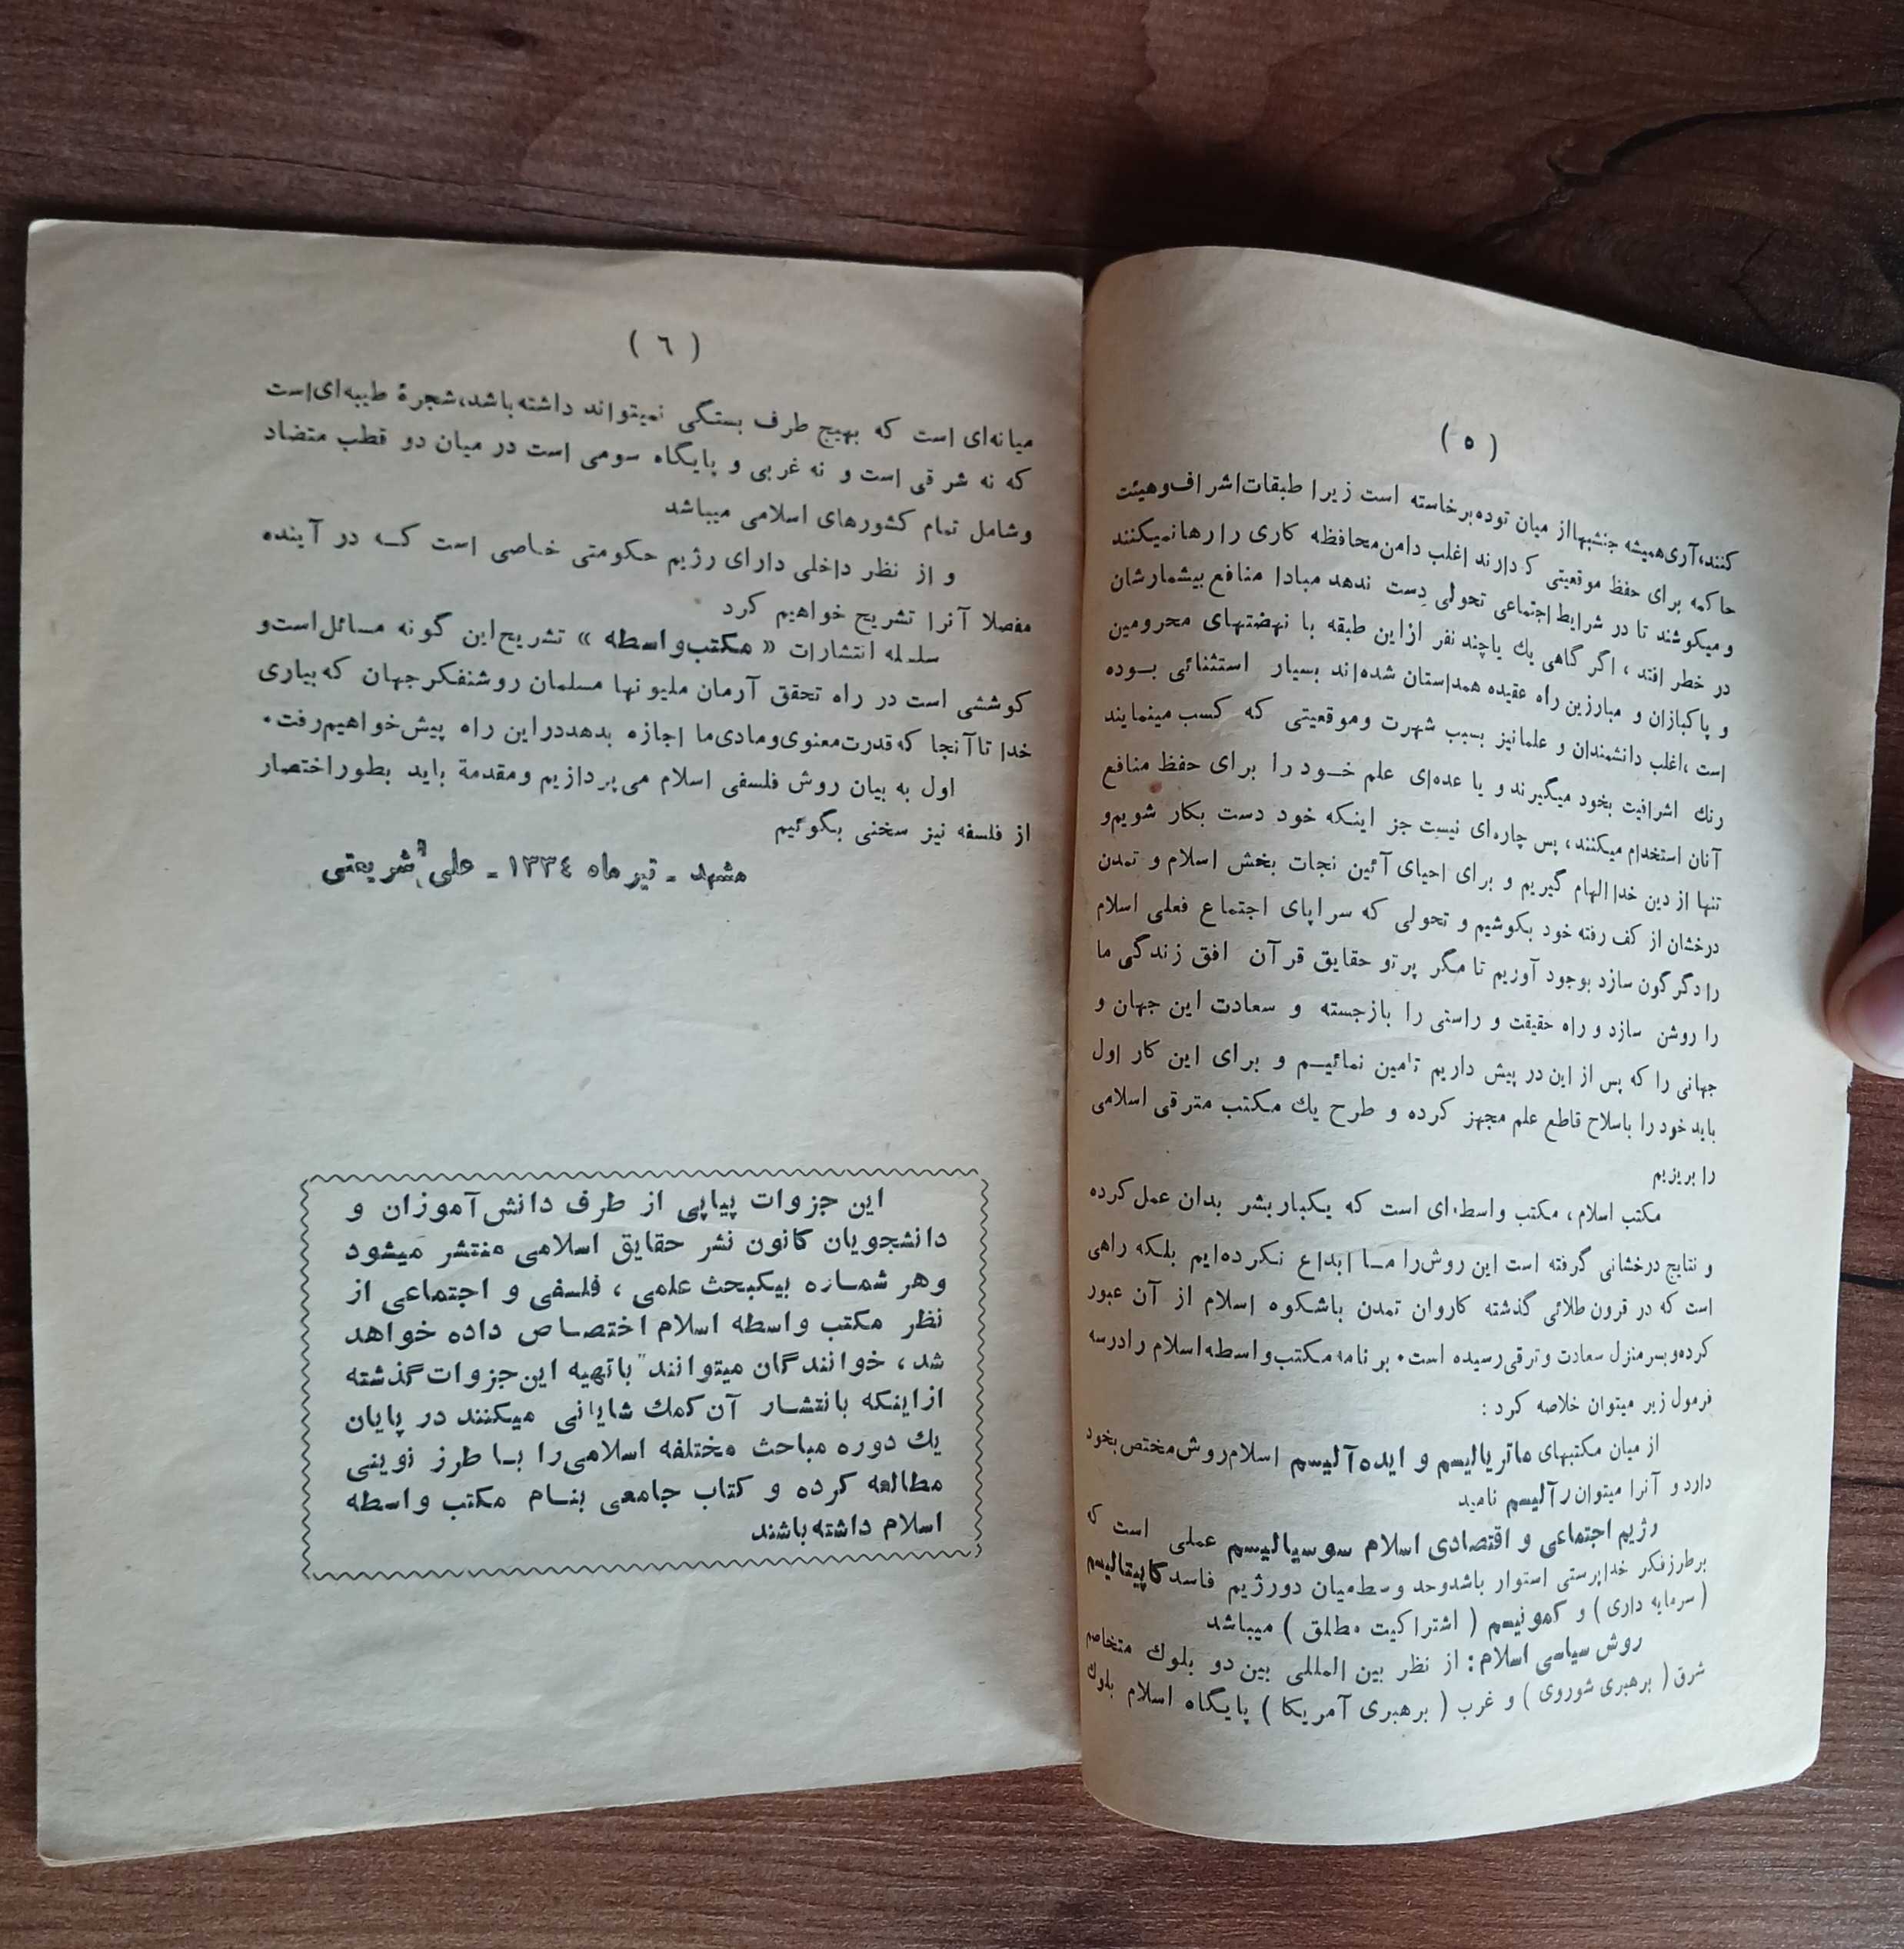 ( ٥ )
کنند، آری همیشه جنبشها از میان توده برخاسته است زیرا طبقات اشراف و هیئت
حاکمه برای حفظ موقعیتی که دارند اغلب دامن محافظه کاری را رها نمیکنند
و میکوشند تا در شرایط اجتماعی تحولی دست ندهد مبادا منافع بیشمارشان
در خطر افتد ، اگر گاهی یك یا چند نفر از این طبقه با نهضتهای محرومین
و پاکبازان و مبارزین راه عقیده همداستان شده‌اند بسیار استثنائی بـوده
است ، اغلب دانشمندان و علما نیز بسبب شهرت و موقعیتی که کسب مینمایند
رنك اشرافیت بخود میگیرند و یا عده‌ای علم خـود را برای حفظ منافع
آنان استخدام میکنند ، پس چاره‌ای نیست جز اینکه خود دست بکار شویم و
تنها از دین خدا الهام گیریم و برای احیای آئین نجات بخش اسلام و تمدن
درخشان از کف رفته خود بکوشیم و تحولی که سراپای اجتماع فعلی اسلام
را دگرگون سازد بوجود آوریم تا مگر پرتو حقایق قرآن افق زندگی ما
را روشن سازد و راه حقیقت و راستی را بازجسته و سعادت این جهان و
جهانی را که پس از این در پیش داریم تامین نمائیـم و برای این کار اول
باید خود را باسلاح قاطع علم مجهز کرده و طرح یك مکتب مترقی اسلامی
را بریزیم
مکتب اسلام ، مکتب واسطه‌ای است که یکبار بشر بدان عمل کرده
و نتایج درخشانی گرفته است این روش را مـا ابداع نکرده‌ایم بلکه راهی
است که در قرون طلائی گذشته کاروان تمدن باشکوه اسلام از آن عبور
کرده و بسرمنزل سعادت و ترقی رسیده است . برنامه مکتب واسطه اسلام را در سه
فرمول زیر میتوان خلاصه کرد :
از میان مکتبهای ماتریالیسم و ایده‌آلیسم اسلام روش مختص بخود
دارد و آنرا میتوان رآلیسم نامید
رژیم اجتماعی و اقتصادی اسلام سوسیالیسم عملی است که
بر طرز فکر خداپرستی استوار باشد و حد وسط میان دو رژیم فاسد کاپیتالیسم
( سرمایه داری ) و کمونیسم ( اشتراکیت مطلق ) میباشد
روش سیاسی اسلام : از نظر بین المللی بین دو بلوك متخاصم
شرق ( برهبری شوروی ) و غرب ( برهبری آمریکا ) پایگاه اسلام بلوك
( ٦ )
میانه‌ای است که بهیچ طرف بستگی نمیتواند داشته باشد، شجرهٔ طیبه‌ای است
که نه شرقی است و نه غربی و پایگاه سومی است در میان دو قطب متضاد
و شامل تمام کشورهای اسلامی میباشد
و از نظر داخلی دارای رژیم حکومتی خاصی است کـه در آینده
مفصلا آنرا تشریح خواهیم کرد
سلسله انتشارات « مکتب واسطه » تشریح این گونه مسائل است و
کوششی است در راه تحقق آرمان ملیونها مسلمان روشنفکر جهان که بیاری
خدا تا آنجا که قدرت معنوی و مادی ما اجازه بدهد در این راه پیش خواهیم رفت .
اول به بیان روش فلسفی اسلام می‌پردازیم و مقدمة باید بطور اختصار
از فلسفه نیز سخنی بگوئیم
مشهد ـ تیر ماه ١٣٣٤ ـ علی شریعتی
این جزوات پیاپی از طرف دانش‌آموزان و
دانشجویان کانون نشر حقایق اسلامی منتشر میشود
و هر شمـاره بیکبحث علمی ، فلسفی و اجتماعی از
نظر مکتب واسطه اسلام اختصـاص داده خواهد
شد ، خوانندگان میتوانند با تهیه این جزوات گذشته
از اینکه بانتشـار آن کمك شایانی میکنند در پایان
یك دوره مباحث مختلفه اسلامی را بـا طرز نوینی
مطالعه کرده و کتاب جامعی بنـام مکتب واسطه
اسلام داشته باشند